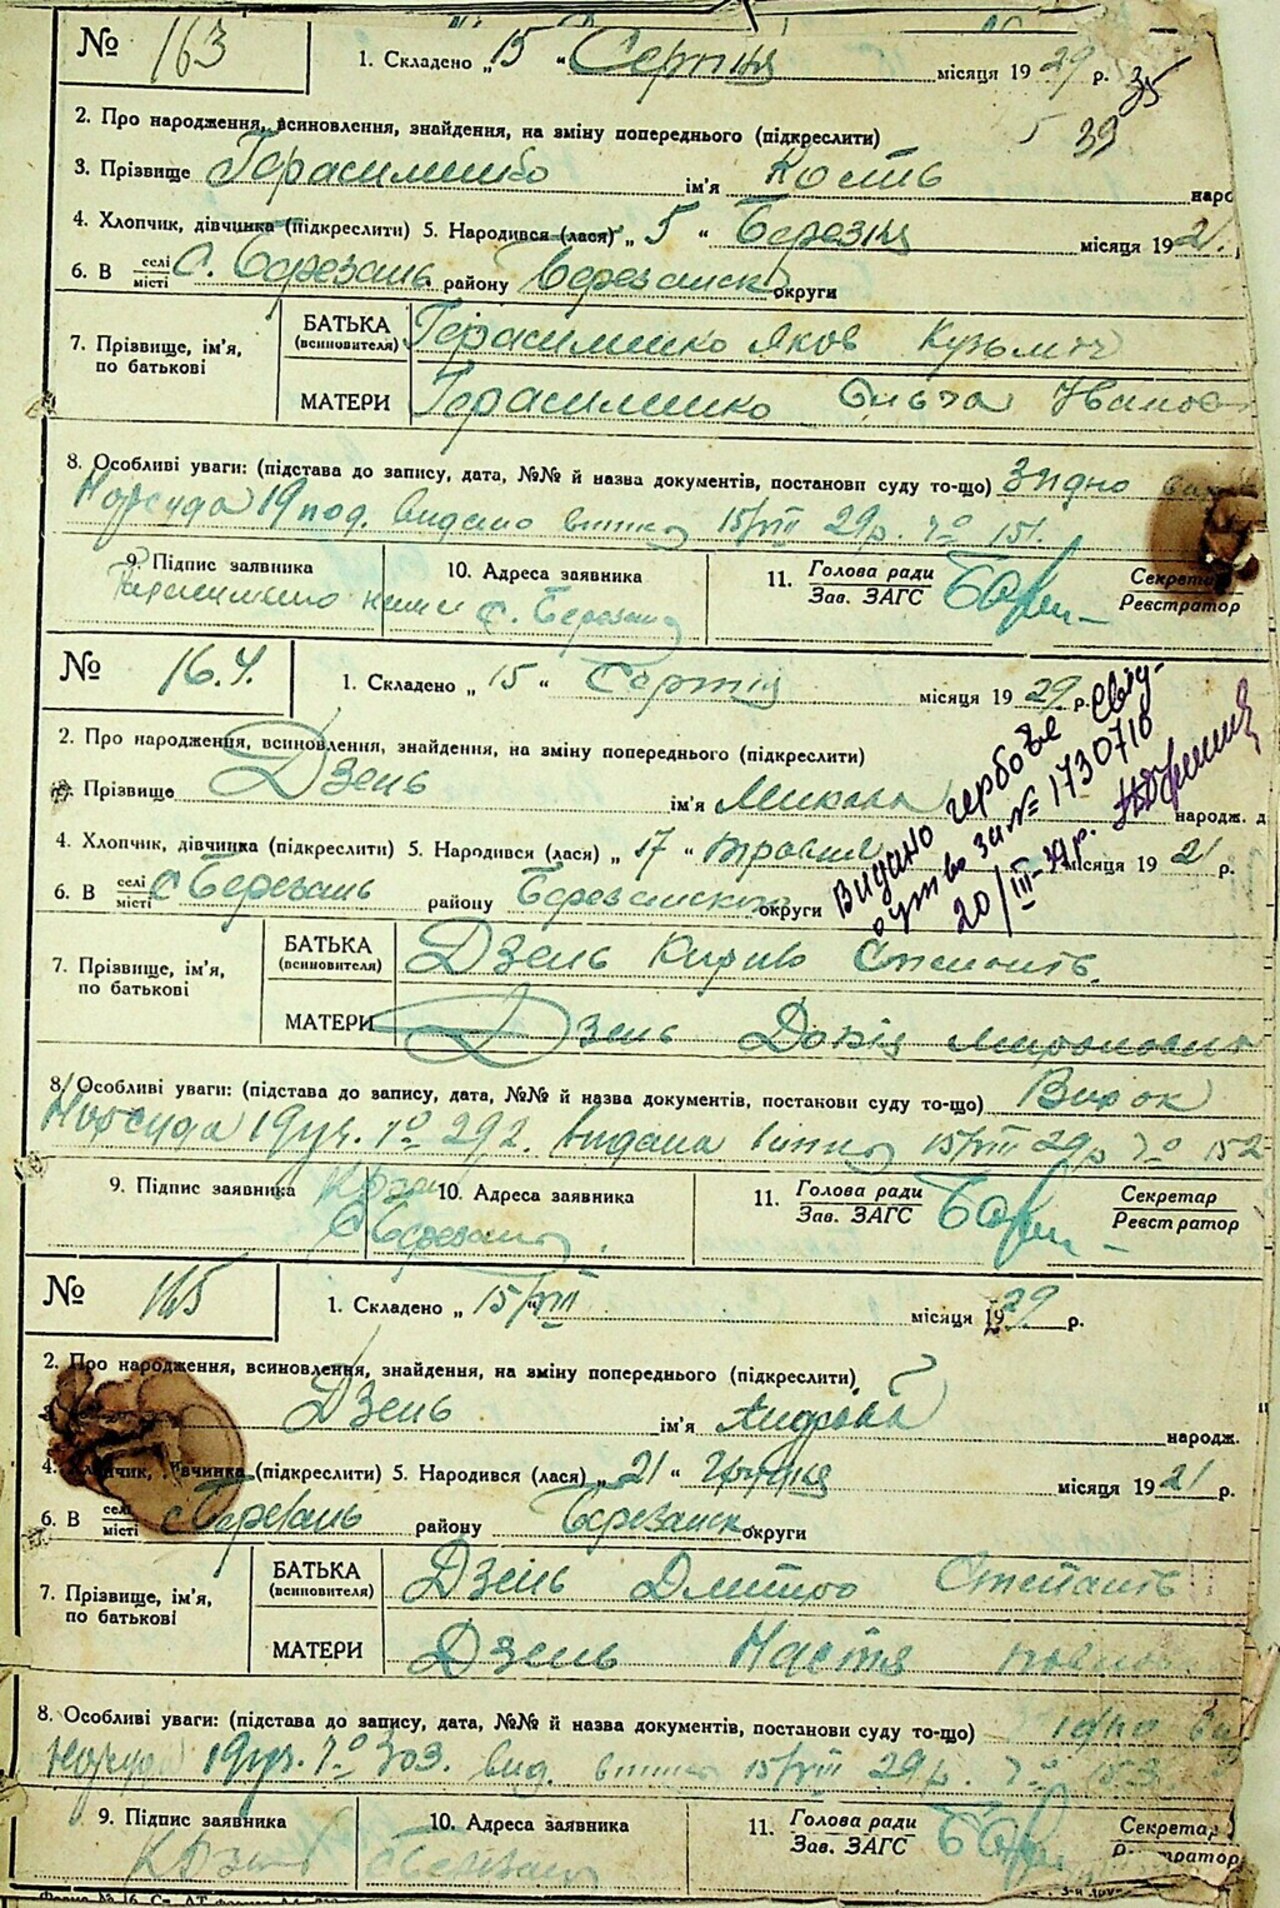 № 163 1. Складено „ 15 “ Серпня місяця 19 29 р. 35
2. Про народження, всиновлення, знайдення, на зміну попереднього (підкреслити) 5 39
3. Прізвище Герасименко ім'я Кость наро
4. Хлопчик, дівчинка (підкреслити) 5. Народився (лася) „ 5 “ Березня місяця 19 21.
6. В селі місті С. Березань району Березанск округи
7. Прізвище, ім'я, по батькові БАТЬКА (всиновителя) Герасименко Яков Кузьмич
МАТЕРИ Герасименко Ольга Иванов
8. Особливі уваги: (підстава до запису, дата, №№ й назва документів, постанови суду то-що) Згідно
Нарсуда 19 видано 15/VIII 29р. № 151.
9. Підпис заявника 10. Адреса заявника с. Березань 11. Голова ради Зав. ЗАГС Секретар Реєстратор
№ 164. 1. Складено „ 15 “ Серпня місяця 19 29 р.
2. Про народження, всиновлення, знайдення, на зміну попереднього (підкреслити)
Прізвище Дзень ім'я Микола народж. д
4. Хлопчик, дівчинка (підкреслити) 5. Народився (лася) „ 17 “ травня місяця 19 21 р.
6. В селі місті С Березань району Березанск округи
Видано гербове сві-
оцтво за № 1730710
20/III-39р.
7. Прізвище, ім'я, по батькові БАТЬКА (всиновителя) Дзень Кирило
МАТЕРИ Дзень Докія Мироновна
8. Особливі уваги: (підстава до запису, дата, №№ й назва документів, постанови суду то-що) Вирок
Нарсуда 19 уч. № 292. видана 15/VIII 29р № 152
9. Підпис заявника 10. Адреса заявника С Березань 11. Голова ради Зав. ЗАГС Секретар Реєстратор
№ 165 1. Складено „ 15/VIII “ місяця 19 29 р.
2. Про народження, всиновлення, знайдення, на зміну попереднього (підкреслити)
Дзень ім'я народж.
4. 5. Народився (лася) „ 21 “ місяця 19 21 р.
(підкреслити)
6. В селі місті с Березань району Березанск округи
7. Прізвище, ім'я, по батькові БАТЬКА (всиновителя) Дзень Дмитро
МАТЕРИ Дзень Настя
8. Особливі уваги: (підстава до запису, дата, №№ й назва документів, постанови суду то-що)
Нарсуда 19 уч. № 303. вид. 15/VIII 29р. № 153
9. Підпис заявника 10. Адреса заявника 11. Голова ради Зав. ЗАГС Секретар